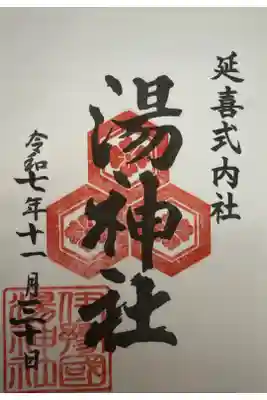 延喜式内社
湯神社
令和七年十一月三十日
伊豫國
湯神社